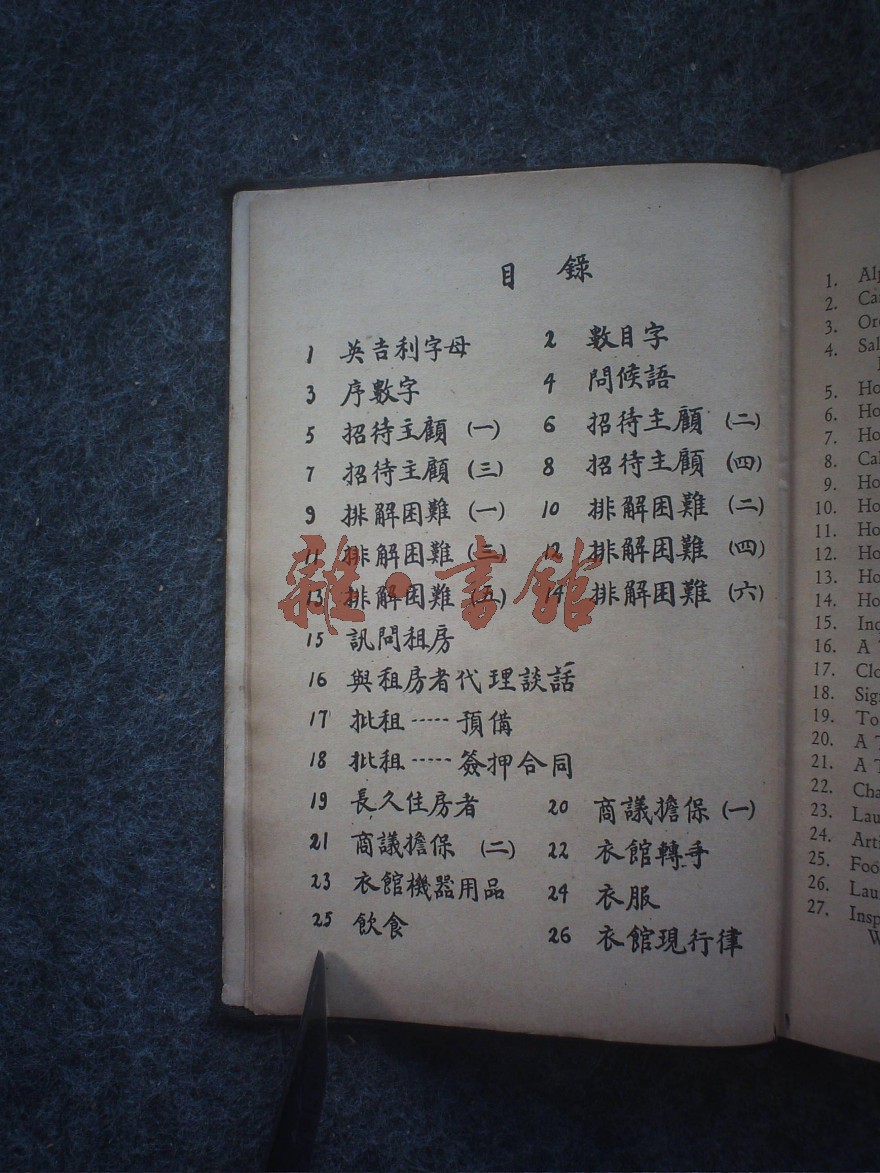 目 錄
1 英吉利字母 2 數目字
3 序數字 4 問候語
5 招待主顧 (一) 6 招待主顧 (二)
7 招待主顧 (三) 8 招待主顧 (四)
9 排解困難 (一) 10 排解困難 (二)
11 排解困難 (三) 12 排解困難 (四)
13 排解困難 (五) 14 排解困難 (六)
15 訊問租房
16 與租房者代理談話
17 批租……預備
18 批租……簽押合同
19 長久住房者 20 商議擔保 (一)
21 商議擔保 (二) 22 衣館轉手
23 衣館機器用品 24 衣服
25 飲食 26 衣館現行律
雜·書館
1. Al
2. Ca
3. Or
4. Sal
5. Ho
6. Ho
7. Ho
8. Cal
9. Ho
10. Ho
11. Ho
12. Ho
13. Ho
14. Ho
15. Inq
16. A
17. Clo
18. Sig
19. To
20. A T
21. A T
22. Cha
23. Lau
24. Arti
25. Foo
26. Lau
27. Insp
W